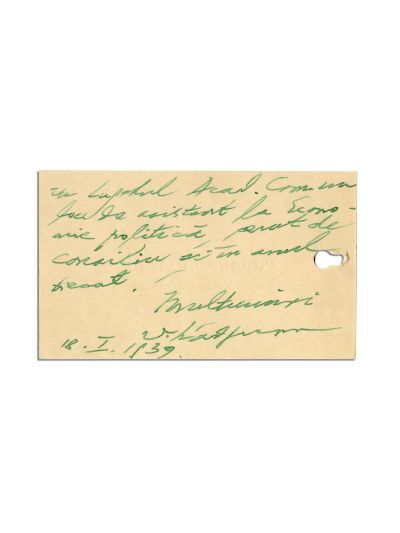 cu Acad. Com. un
loc de asistent la Econo-
mie politică, de
consiliu și în anul
trecut.
Mulțumiri
18. I. 1939.